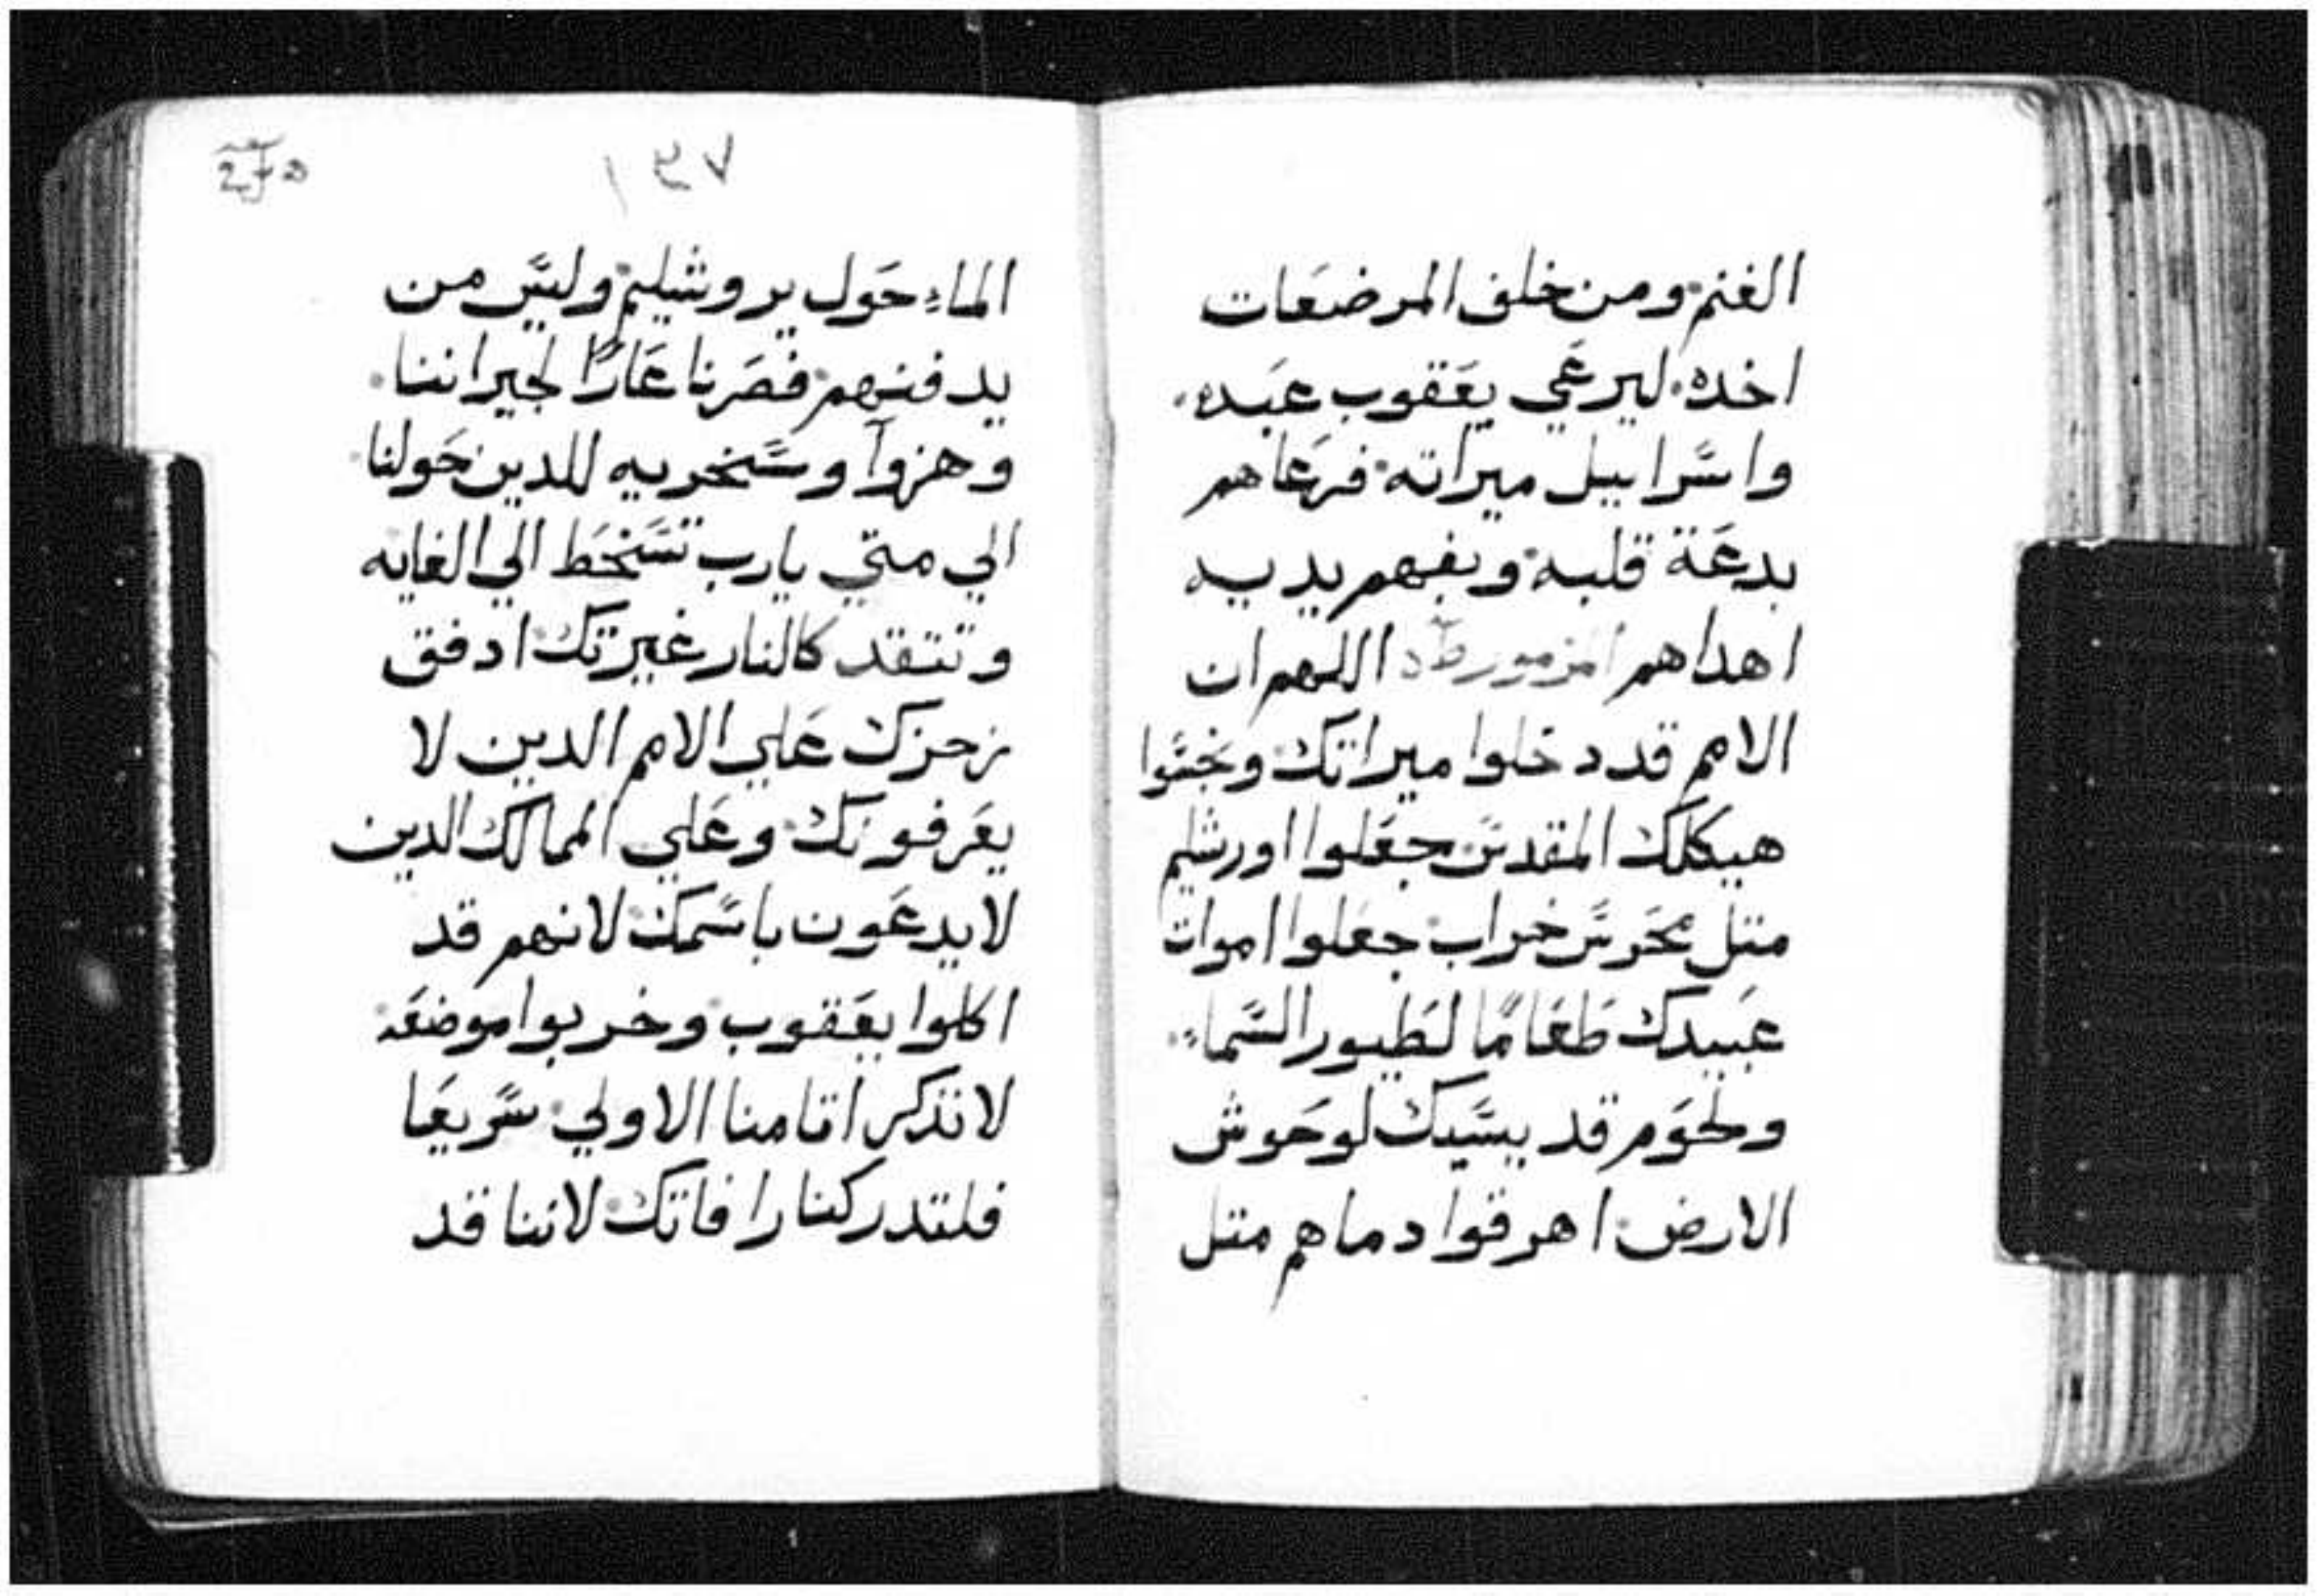 الغنم ومن خلف المرضعات
اخده. ليرعي يعقوب عبده.
واسراييل ميراته فرعاهم
بدعة قلبه وبفهم يديه
اهداهم المزمور اللهم ان
الامم قد دخلوا ميراتك ونجسوا
هيكلك المقدس جعلوا اورشليم
متل محرس خراب جعلوا اموات
عبيدك طعامًا لطيور السماء.
ولحوم قديسيك لوحوش
الارض اهرقوا دماهم متل
١٣٧
الماء حول يروشليم وليس من
يدفنهم فصرنا عارًا لجيراننا.
وهزوآ وسخريه للدين حولنا
الي متي يارب تسخط الي الغايه
وتتقد كالنار غيرتك ادفق
زحزك علي الامم الدين لا
يعرفونك وعلي الممالك الدين
لا يدعون باسمك لانهم قد
اكلوا يعقوب وخربوا موضعه
لا تذكر اتامنا الاولي سريعا
فلتدركنا رافاتك لاننا قد